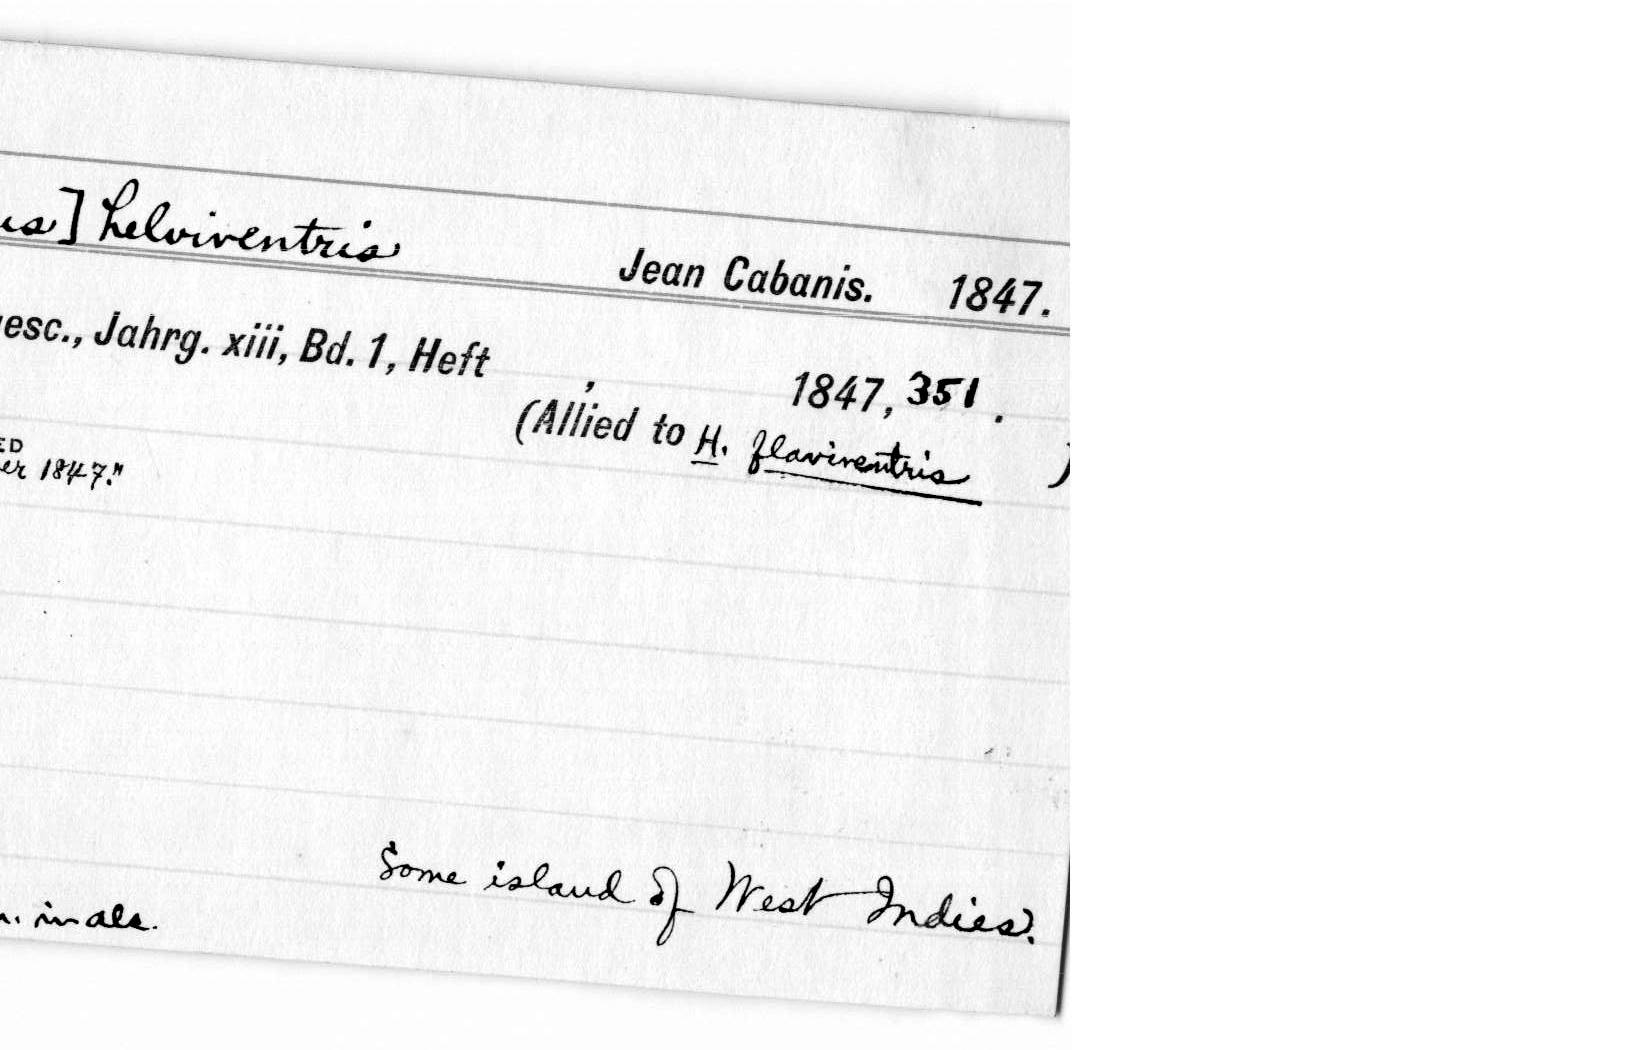 us] helviventris Jean Cabanis. 1847.
gesc., Jahrg. xiii, Bd. 1, Heft , 1847, 351.
(Allied to H. flaviventris )
ED
er 1847."
Some island of West Indies.
in alc.